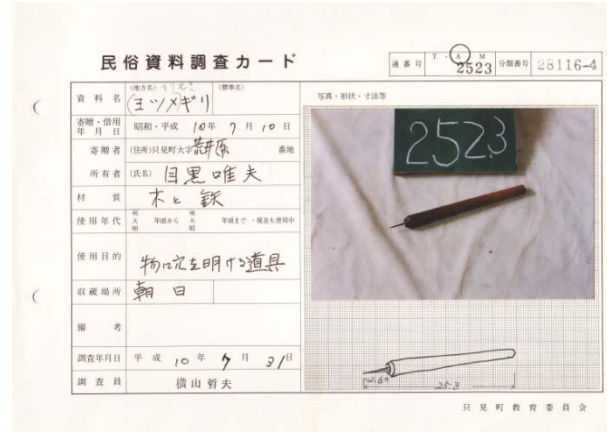 民俗資料調査カード
通番号 T・A M 2523 分類番号 28116-4
資料名 (地方名) (標準名)
(ヨツメギリ
写真・形状・寸法等
寄贈・借用年月日 昭和・平成 10年 7月 10日
寄贈者 (住所)只見町大字 荒井原 番地
所有者 (氏名) 目黒唯夫
材質 木と鉄
使用年代 明大昭 年頃から 明大昭 年頃まで・現在も使用中
使用目的 物に穴を明ける道具
収蔵場所 朝日
備考
調査年月日 平成 10年 7月 31日
調査員 横山哲夫
2523
25.3
只見町教育委員会